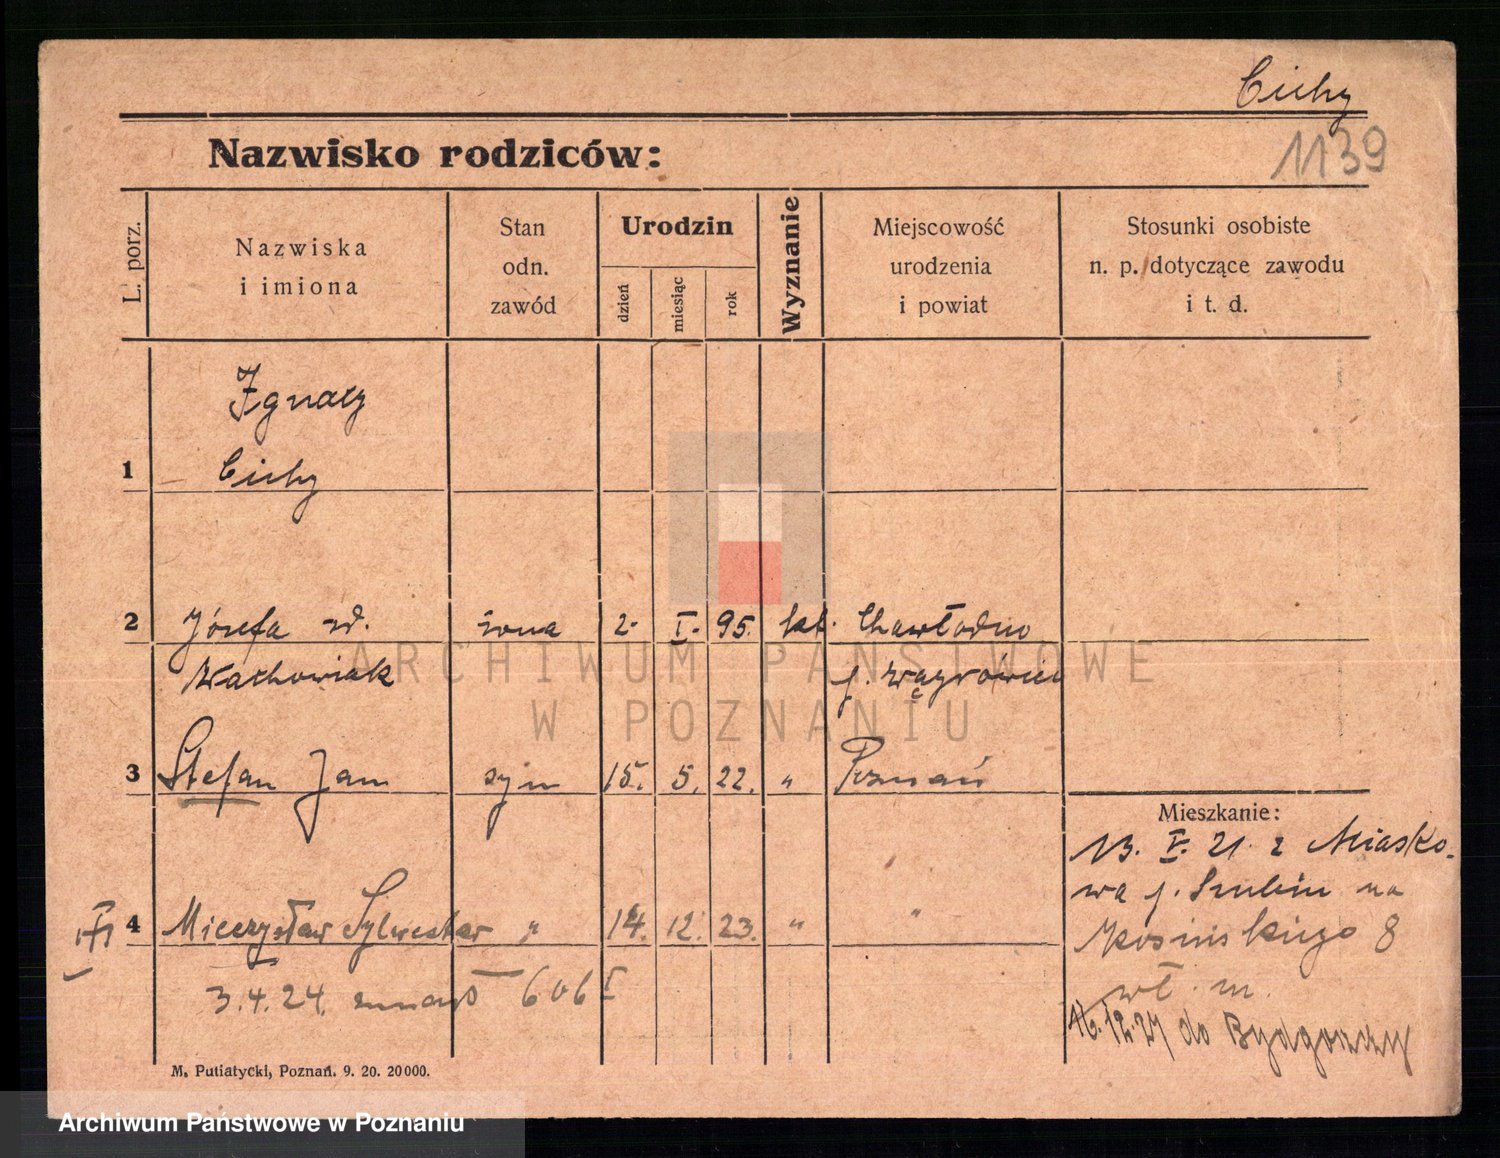 Cichy
1139
Nazwisko rodziców:
L. porz.
Nazwiska
i imiona
Stan
odn.
zawód
Urodzin
dzień
miesiąc
rok
Wyznanie
Miejscowość
urodzenia
i powiat
Stosunki osobiste
n. p. dotyczące zawodu
i t. d.
Ignacy
1 Cichy
2 Józefa zd. żona 2. I. 95. kat. Chawłodno
Wachowiak p. Wągrówiec
3 Stefan Jan syn 15. 5. 22. " Poznań
Mieszkanie:
13. V. 21. z Miasko-
wa p. Szubin na
III 4 Mieczysław Sylwester " 14. 12. 23. " "
Kosińskiego 8
3.4.24. zmarł 606 I
wł. m.
16.12.27 do Bydgoszczy
M. Putiatycki, Poznań. 9. 20. 20000.
ARCHIWUM PAŃSTWOWE
W POZNANIU
Archiwum Państwowe w Poznaniu